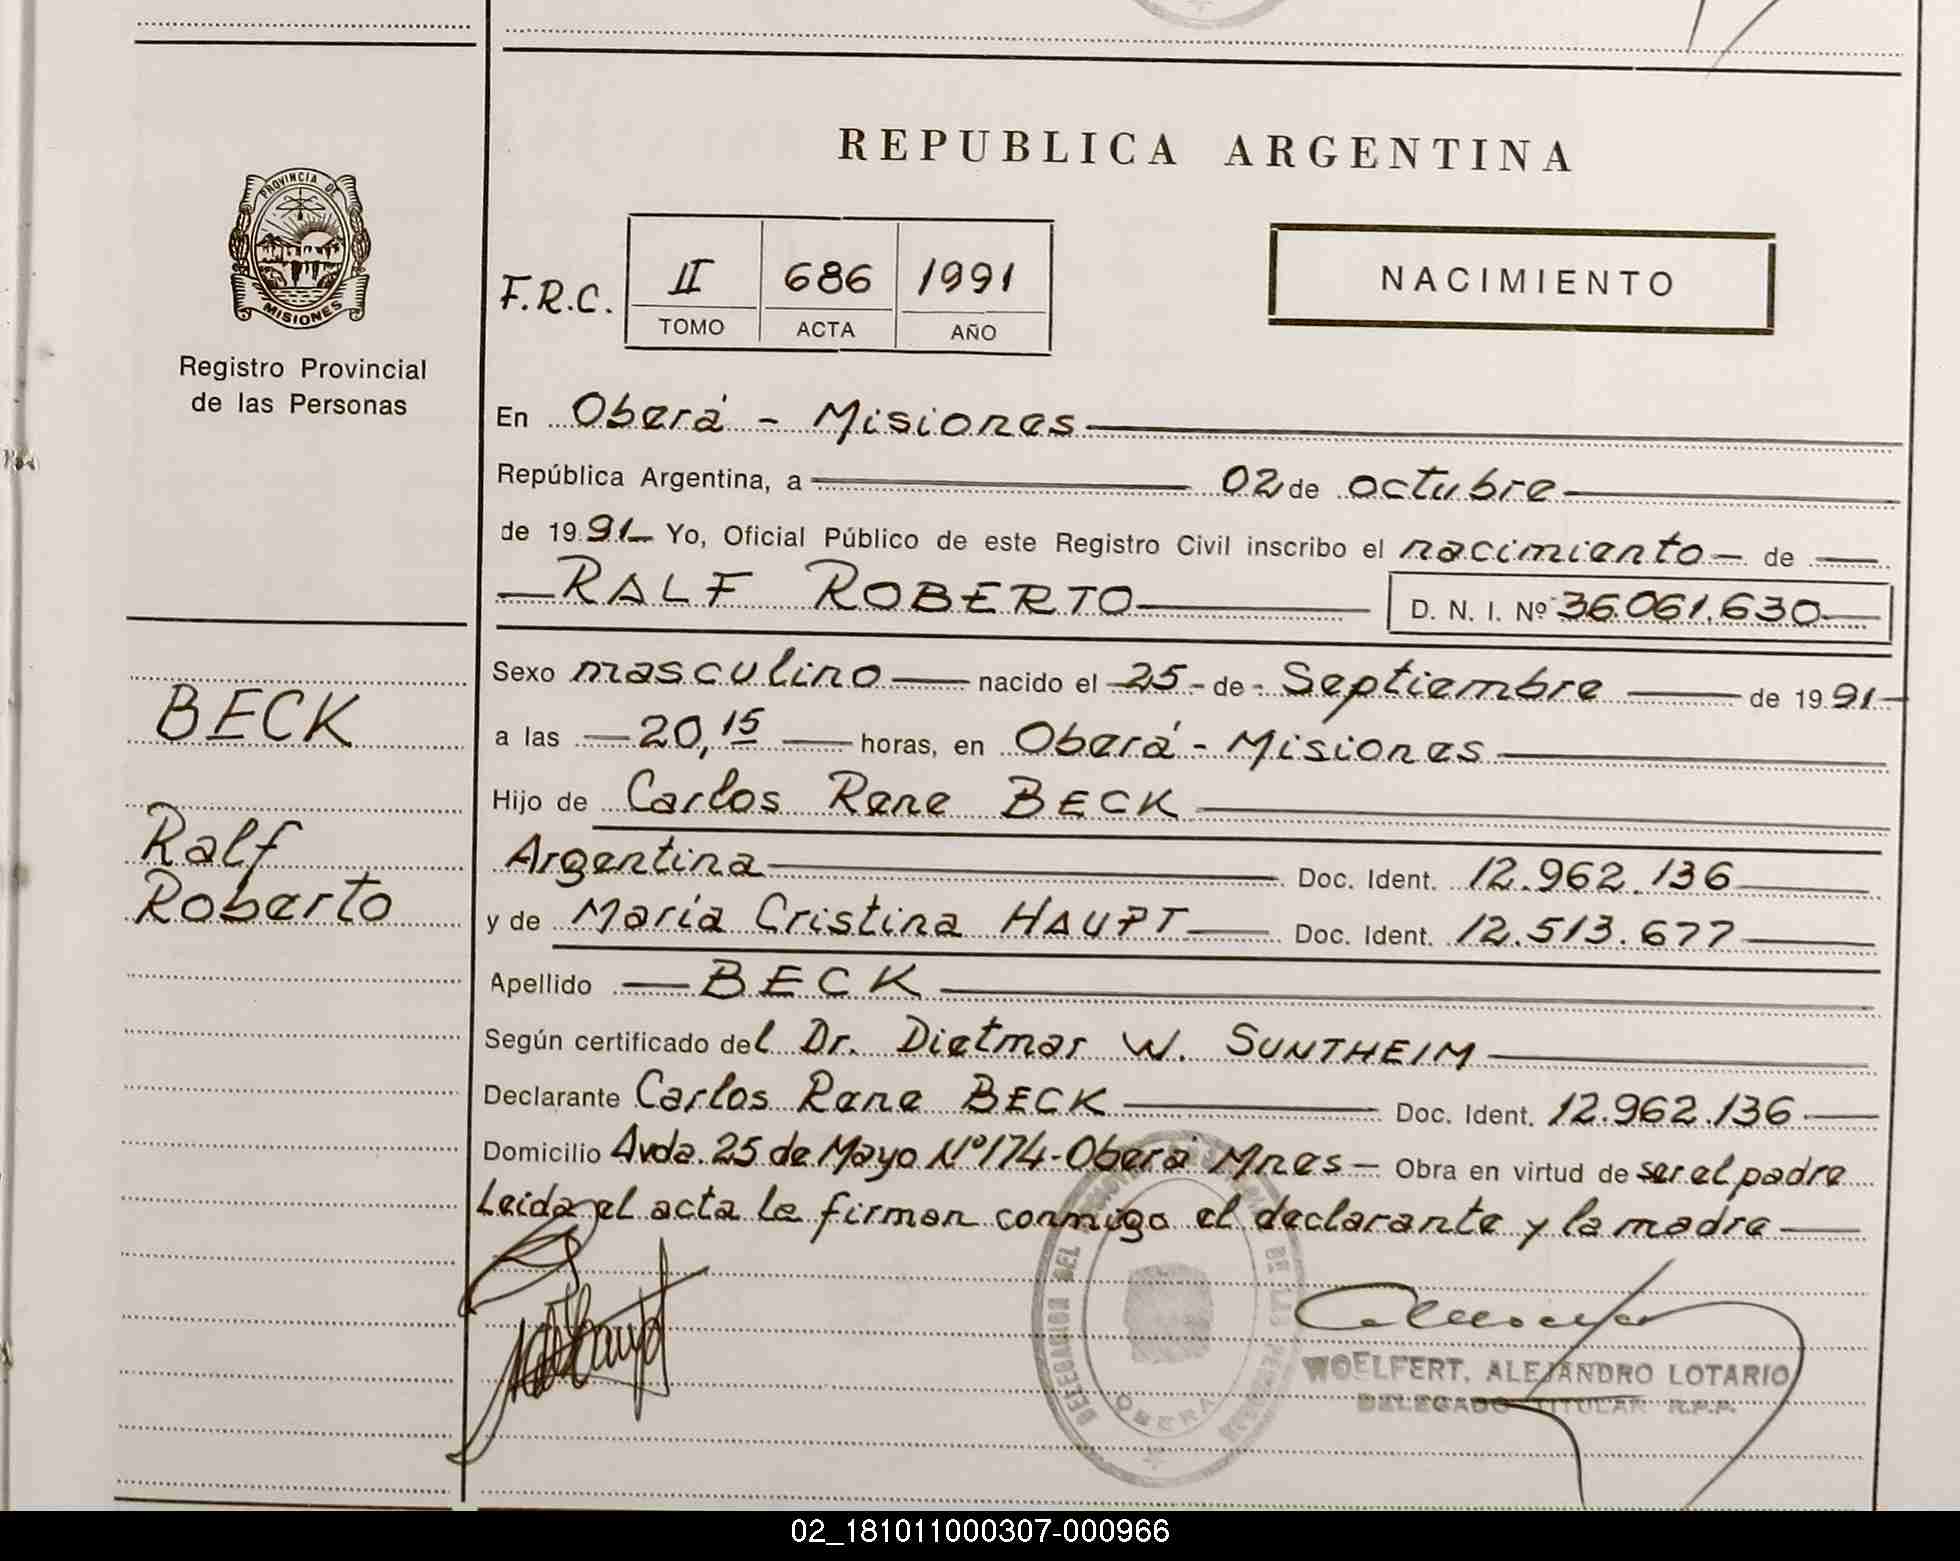 REPUBLICA ARGENTINA
PROVINCIA DE
MISIONES
Registro Provincial
de las Personas
F.R.C.
II 686 1991
TOMO ACTA AÑO
NACIMIENTO
En Oberá - Misiones
República Argentina, a 02 de octubre
de 1991 Yo, Oficial Público de este Registro Civil inscribo el nacimiento de
RALF ROBERTO D. N. I. Nº 36.061.630
BECK
Ralf
Roberto
Sexo masculino nacido el 25 - de - Septiembre de 1991
a las 20,15 horas, en Oberá - Misiones
Hijo de Carlos Rene BECK
Argentina Doc. Ident. 12.962.136
y de María Cristina HAUPT Doc. Ident. 12.513.677
Apellido BECK
Según certificado del Dr. Dietmar W. SUNTHEIM
Declarante Carlos Rene BECK Doc. Ident. 12.962.136
Domicilio Avda. 25 de Mayo Nº 174 - Oberá Mnes - Obra en virtud de ser el padre
Leida el acta la firman conmigo el declarante y la madre
WOELFERT, ALEJANDRO LOTARIO
DELEGADO TITULAR R.P.P.
DELEGACION DEL
DE LAS PERSONAS
OBERA
02_181011000307-000966